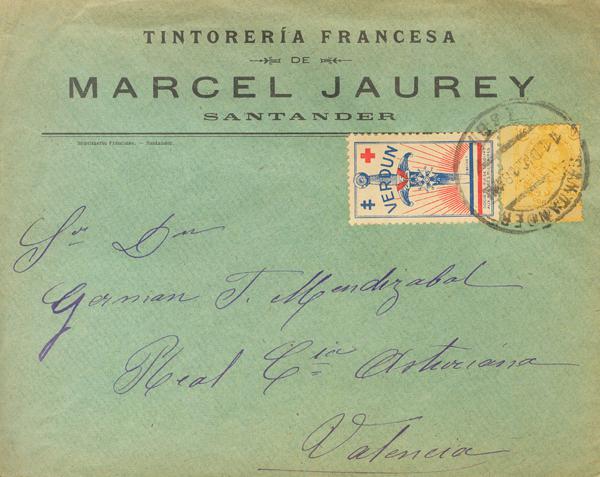 TINTORERÍA FRANCESA
DE
MARCEL JAUREY
SANTANDER
Imprimerie Française. — Santander.
VERDUN
SANTANDER
Sr Dn
German T. Mendizabal
Real Cia Asturiana
Valencia